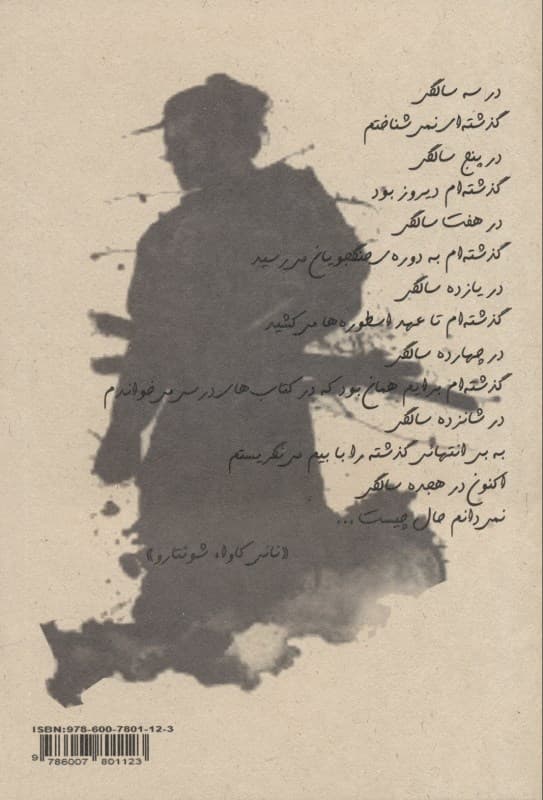 در سه سالگی
گذشته‌ای نمی‌شناختم
در پنج سالگی
گذشته‌ام دیروز بود
در هفت سالگی
گذشته‌ام به دوره‌ی جنگجویان می‌رسید
در یازده سالگی
گذشته‌ام تا عهد اسطوره‌ها می‌کشید
در چهارده سالگی
گذشته‌ام برایم همان بود که در کتاب‌های درسی می‌خواندم
در شانزده سالگی
به بی‌انتهائی گذشته را با بیم می‌نگریستم
اکنون در هجده سالگی
نمی‌دانم حال چیست...
«تانی کاوا، شونتارو»
ISBN:978-600-7801-12-3
9 786007 801123